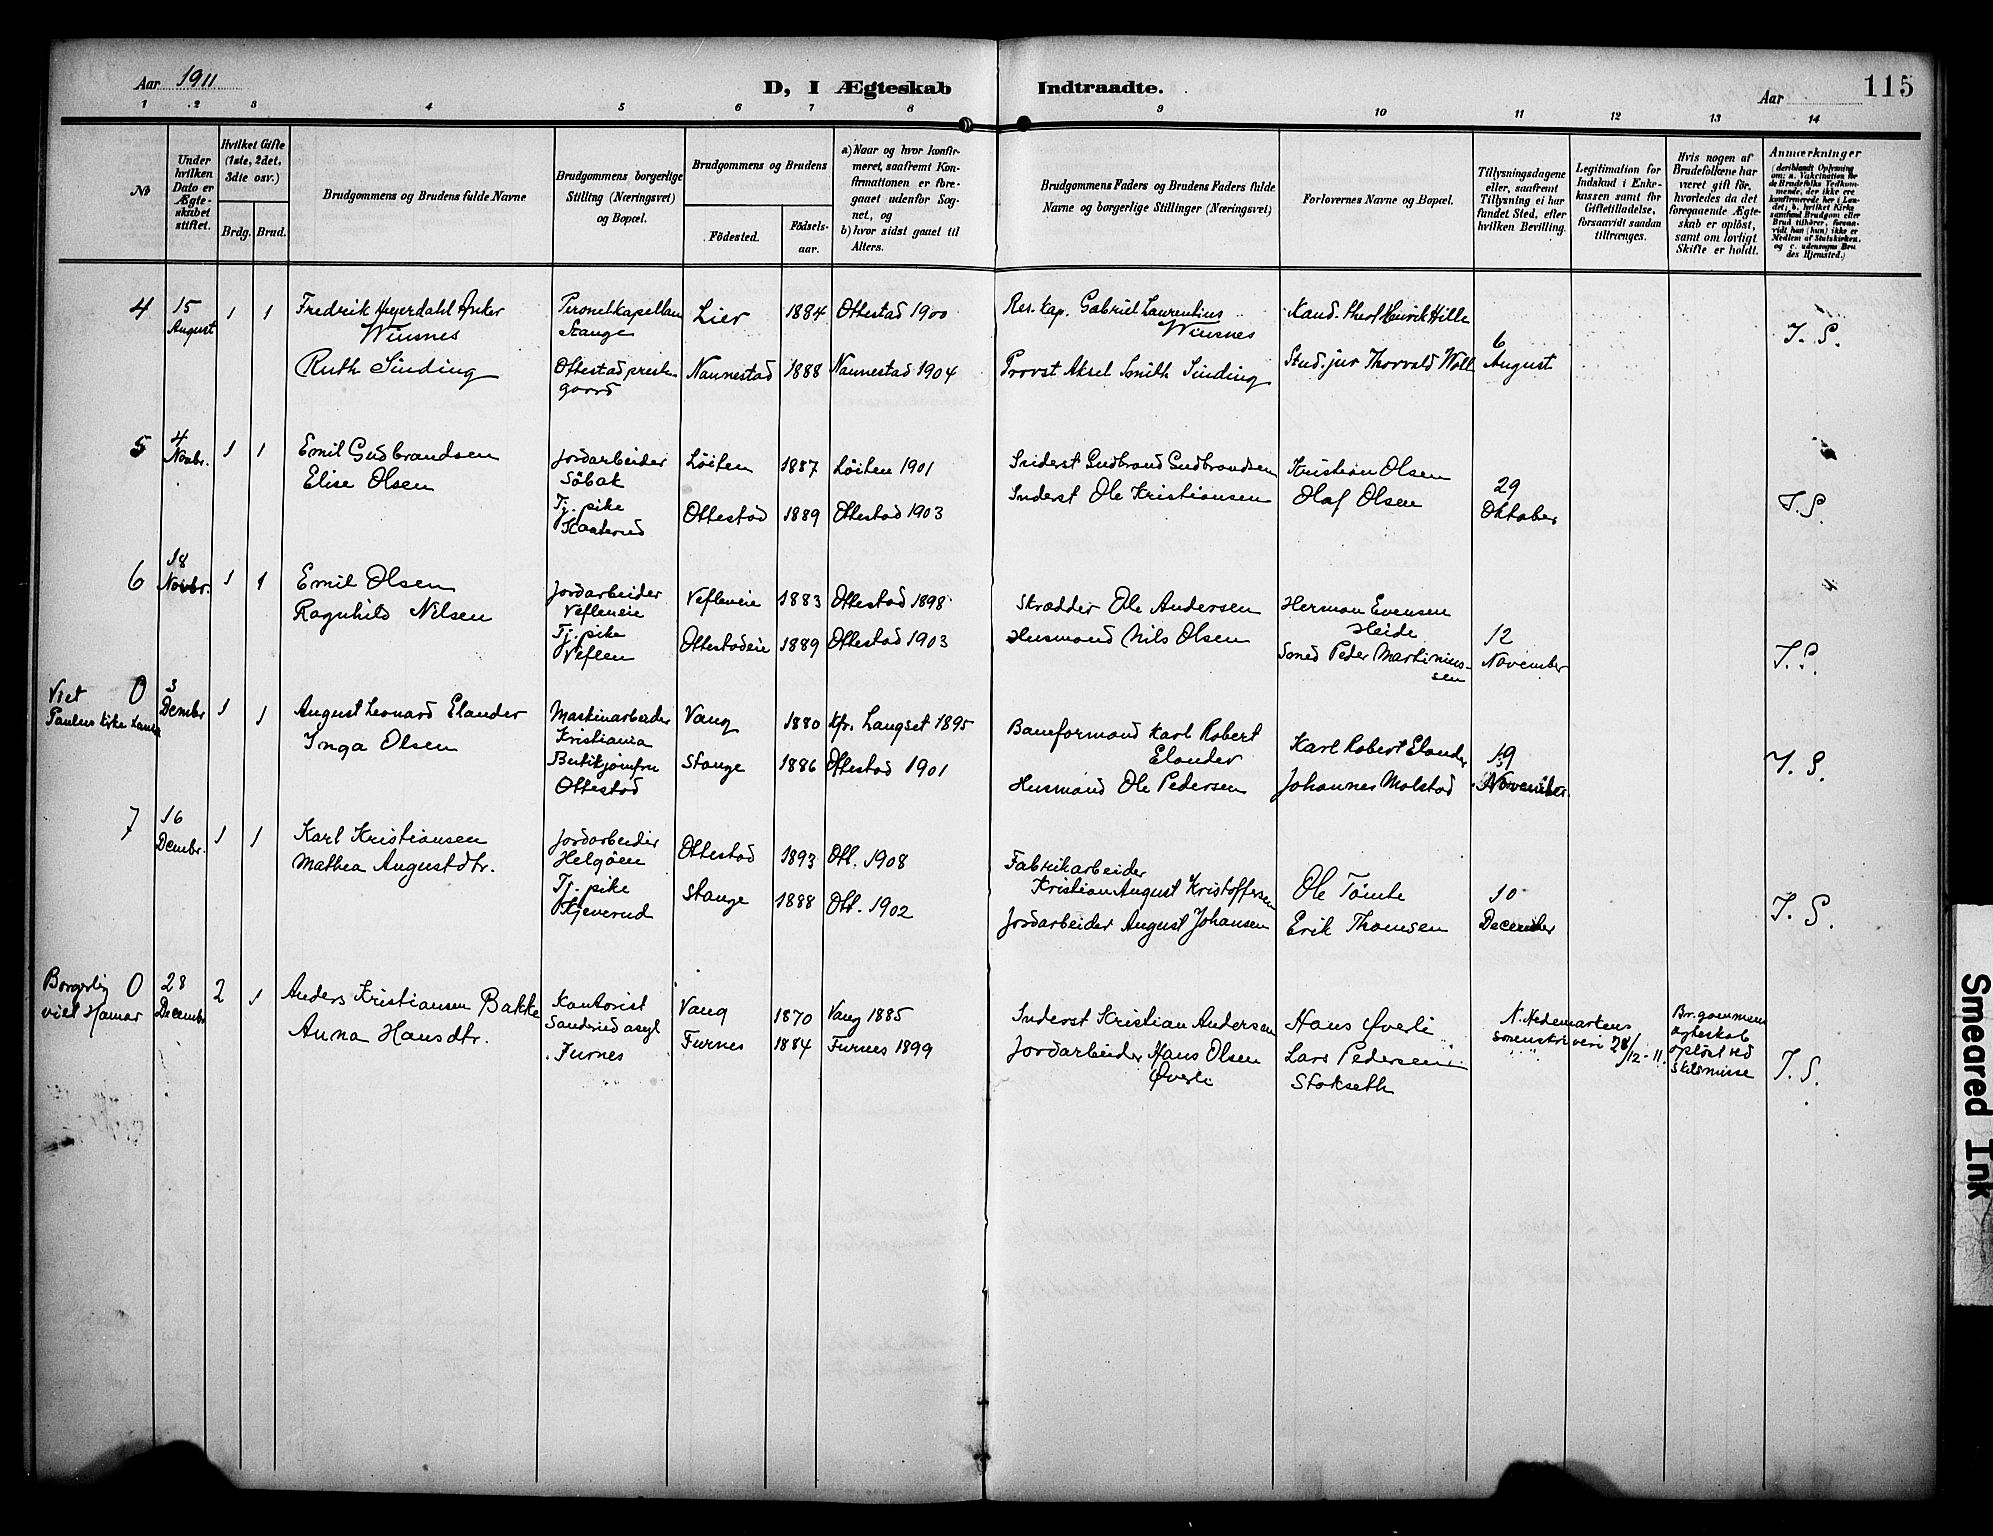 Aar 1911
D, I Ægteskab Indtraadte.
Aar
115
1 2 3 4 5 6 7 8 9 10 11 12 13 14
No
Under hvilken Dato er Ægteskabet stiftet.
Hvilket Gifte (1ste, 2det, 3die osv.)
Brdg. Brud.
Brudgommens og Brudens fulde Navne
Brudgommens borgerlige Stilling (Næringsvei) og Bopæl.
Brudgommens og Brudens
Födested.
Födsels-aar.
a) Naar og hvor konfirmeret, saafremt Konfirmationen er foregaaet udenfor Sognet, og
b) hvor sidst gaaet til Alters.
Brudgommens Faders og Brudens Faders fulde Navne og borgerlige Stillinger (Næringsvei)
Forlovernes Navne og Bopæl.
Tillysningsdagene eller, saafremt Tillysning ei har fundet Sted, efter hvilken Bevilling.
Legitimation for Indskud i Enkekassen samt for Giftetilladelse, forsaavidt saadan tiltrænges.
Hvis nogen af Brudefolkene har været gift för, hvorledes da det foregaaende Ægteskab er oplöst, samt om lovligt Skifte er holdt.
Anmærkninger
4 15 August 1 1
Fredrik Heyerdahl Anker Winsnes
Personelkapellan Stange
Lier 1884 Ottestad 1900
Res. kap. Gabriel Laurentius Winsnes
Kand. theol Henrik Hille
Ruth Sinding
Ottestad prestegaard
Nannestad 1888 Nannestad 1904
Provst Aksel Smith Sinding
Stud. jur Thorvald Woll
6 August
I. S.
5 4 Novbr. 1 1
Emil Gudbrandsen
Jordarbeider Söbak
Löiten 1887 Löiten 1901
Inderst Gudbrand Gudbrandsen
Kristian Olsen
Elise Olsen
Tj. pike Kaaterud
Ottestad 1889 Ottestad 1903
Inderst Ole Kristiansen
Olaf Olsen
29 Oktober
I. S.
6 18 Novbr. 1 1
Emil Olsen
Jordarbeider Vefleneie
Vefleneie 1883 Ottestad 1898
Skrædder Ole Andersen
Herman Evensen Heide
Ragnhild Nilsen
Tj. pike Veflen
Ottestadeie 1889 Ottestad 1903
Husmand Nils Olsen
Smed Peder Martiniussen
12 November
I. S.
Viet Paulus kirke
0 3 Dcembr 1 1
August Leonard Elander
Maskinarbeider Kristiania
Vang 1880 Kfr. Langset 1895
Baneformand Karl Robert Elander
Karl Robert Elander
Inga Olsen
Butikjomfru Ottestad
Stange 1886 Ottestad 1901
Husmand Ole Pedersen
Johannes Molstad
19 November
I. S.
7 16 Dcembr. 1 1
Karl Kristiansen
Jordarbeider Helgöen
Ottestad 1893 Ott. 1908
Fabrikarbeider Kristian August Kristoffersen
Ole Tömte
Mathea Augustdtr.
Tj. pike Kjeverud
Stange 1888 Ott. 1902
Jordarbeider August Johansen
Erik Thomsen
10 December
I. S.
Borgerlig viet Hamar
0 28 Decembr 2 1
Anders Kristiansen Bakke
Kantorist Sanderud asyl
Vang 1870 Vang 1885
Inderst Kristian Andersen
Hans Øverli
Anna Hansdtr.
Furnes
Furnes 1884 Furnes 1899
Jordarbeider Hans Olsen Øverli
Lars Pedersen Stokseth
N. Hedemarkens sorenskriveri 28/12-11.
Br. gommens egteskab oplöst ved skilsmisse
I. S.
Smeared Ink